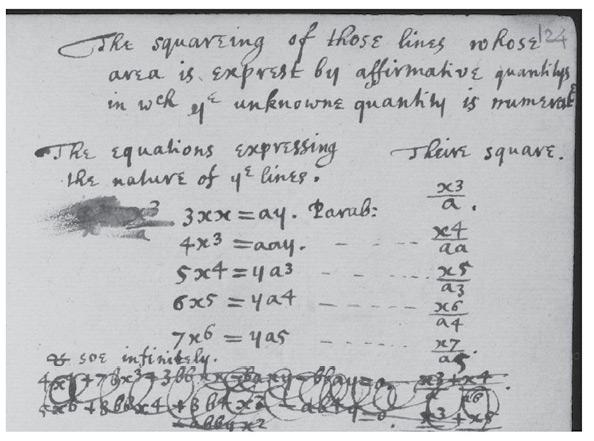 124
The squareing of those lines whose
area is exprest by affirmative quantitys
in wch ye unknowne quantity is numerat
The equations expressing Theire square.
the nature of ye lines.
x3/a 3xx = ay. Parab: x3/a.
4x3 = aay. - - - x4/aa
5x4 = ya3 - - - - x5/a3
6x5 = ya4 - - - - - x6/a4
7x6 = ya5 - - - - x7/a5.
& soe infinitely.